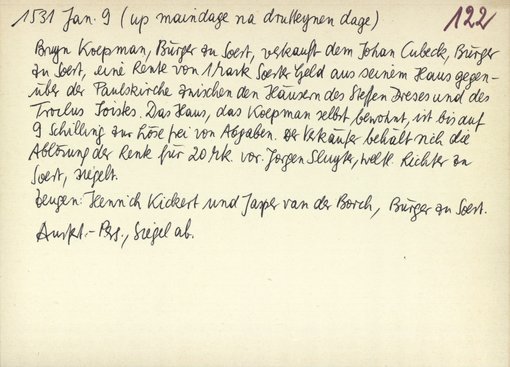 1531 Jan. 9 (up maindage na drutteynen dage) 122
Bruyn Koepman, Bürger zu Soest, verkauft dem Johan Cubeck, Bürger
zu Soest, eine Rente von 1 Mark Soester Geld aus seinem Haus gegen-
über der Paulskirche zwischen den Häusern des Steffen Dreses und des
Troclus Joistes. Das Haus, das Koepman selbst bewohnt, ist bis auf
9 Schilling zur Höse frei von Abgaben. Verkäufer behält sich die
Ablösung der Rente für 20 Mk. vor. Jorgen Sluyter, weltl. Richter zu
Soest, siegelt.
Zeugen: Henrich Kickert und Jasper van der Borch, Bürger zu Soest.
Ausf.- Perg., Siegel ab.